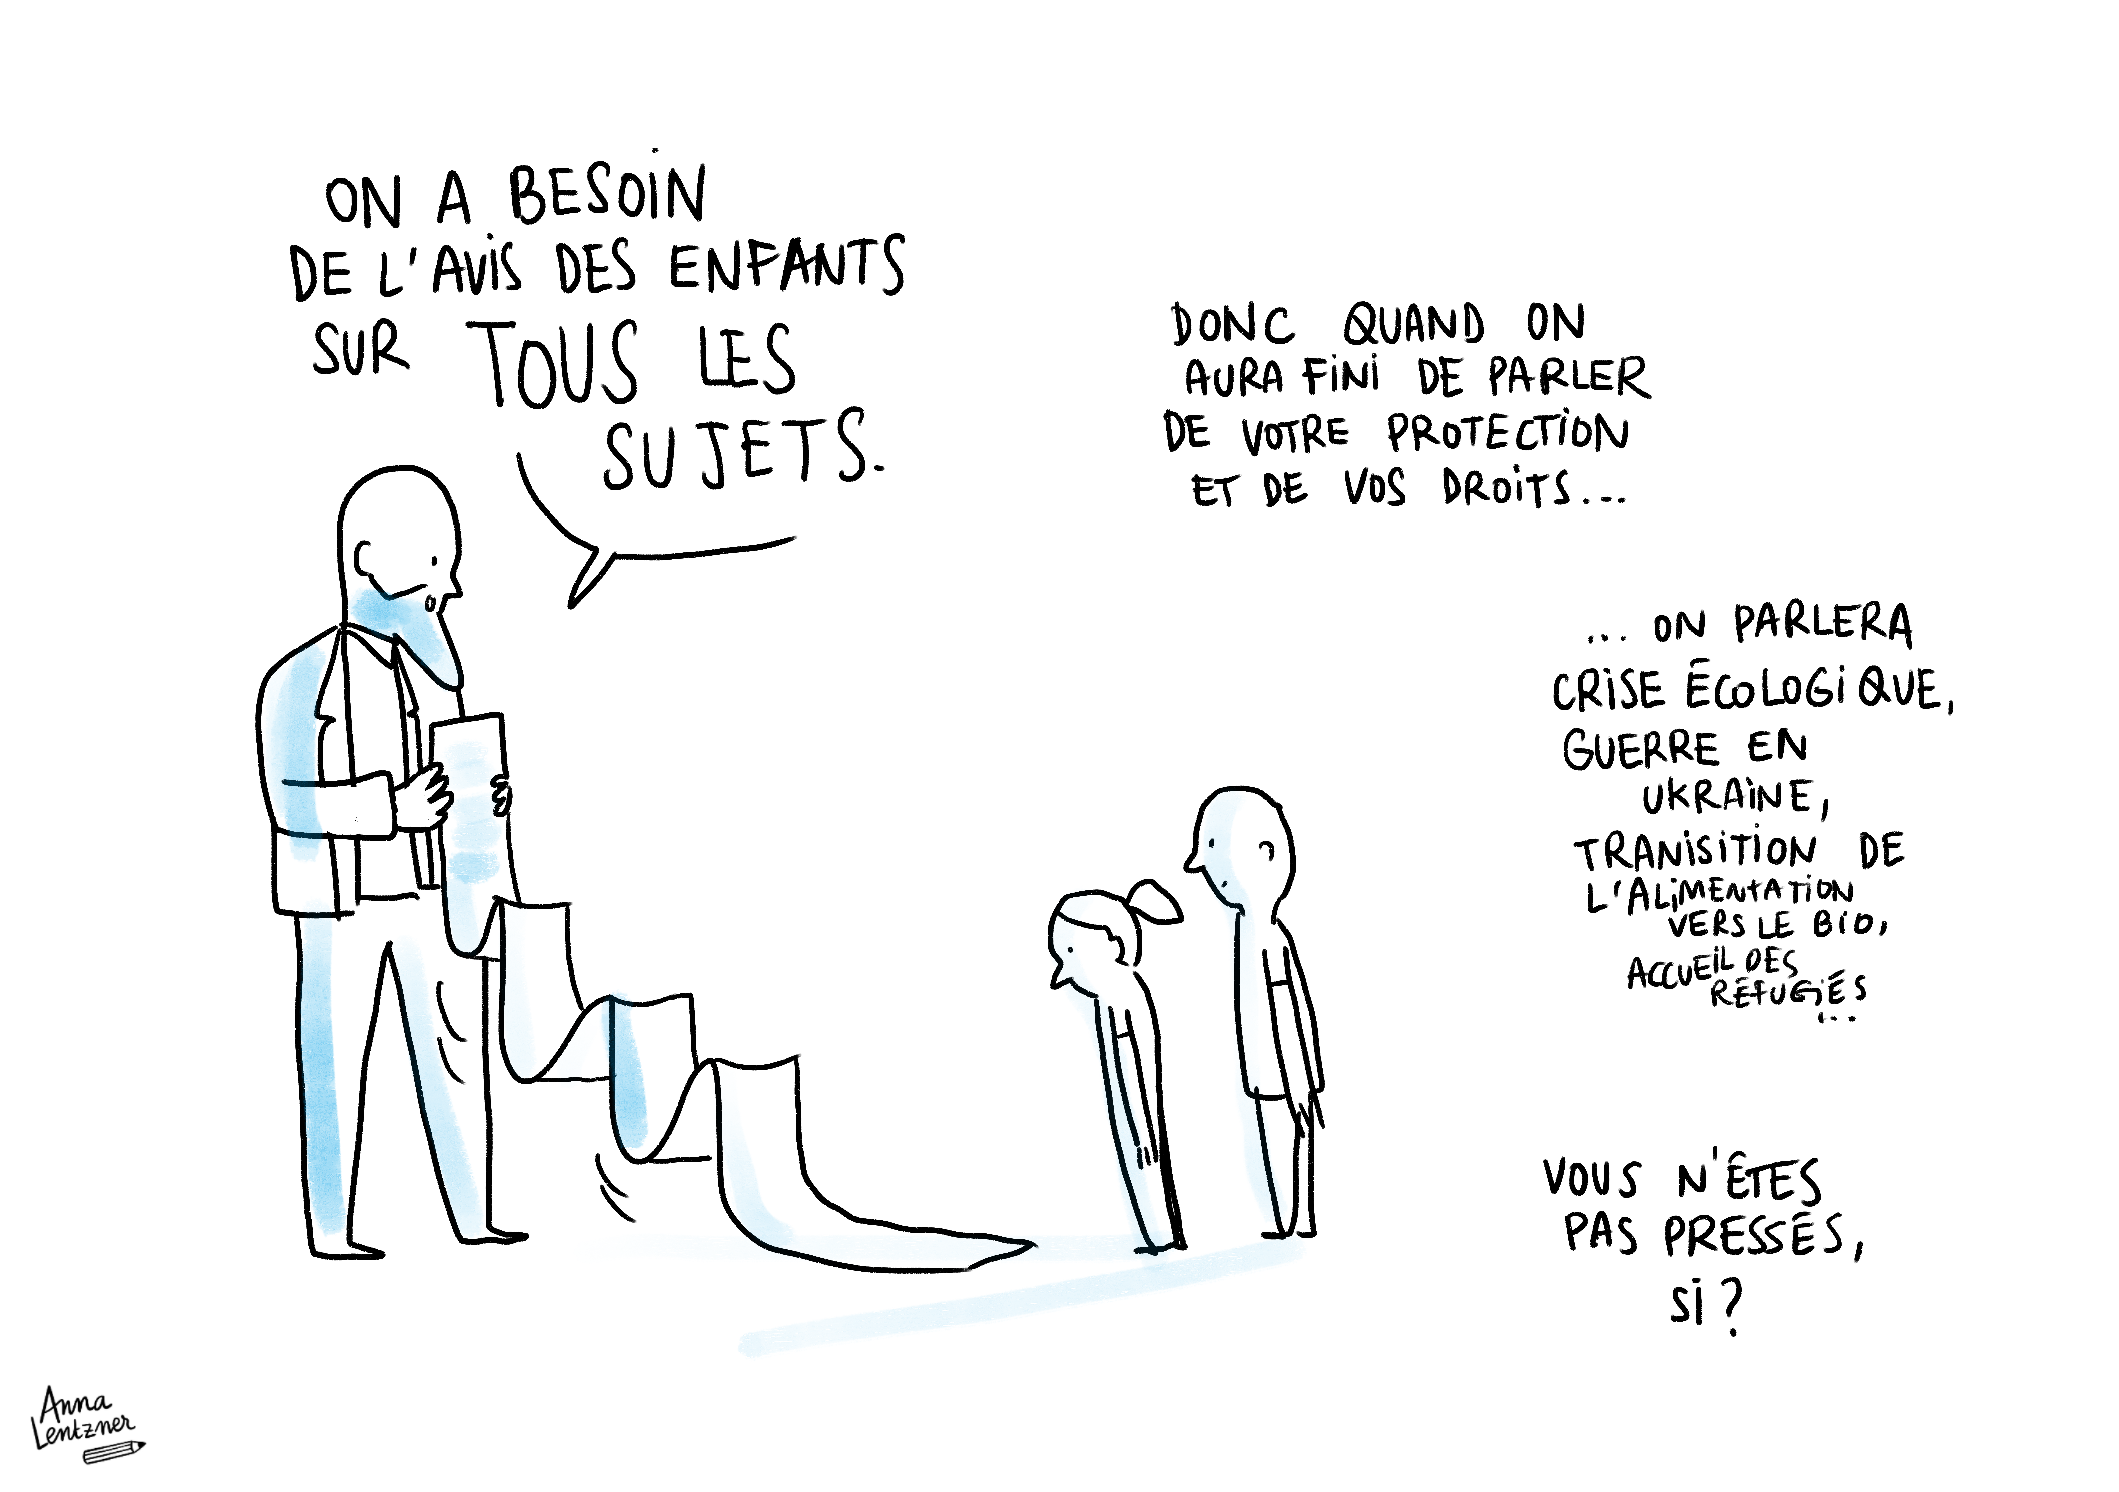 ON A BESOIN
DE L'AVIS DES ENFANTS
SUR TOUS LES
SUJETS.
DONC QUAND ON
AURA FINI DE PARLER
DE VOTRE PROTECTION
ET DE VOS DROITS...
... ON PARLERA
CRISE ÉCOLOGIQUE,
GUERRE EN
UKRAINE,
TRANISITION DE
L'ALIMENTATION
VERS LE BIO,
ACCUEIL DES
RÉFUGIÉS
...
VOUS N'ÊTES
PAS PRESSÉS,
SI ?
Anna
Lentzner